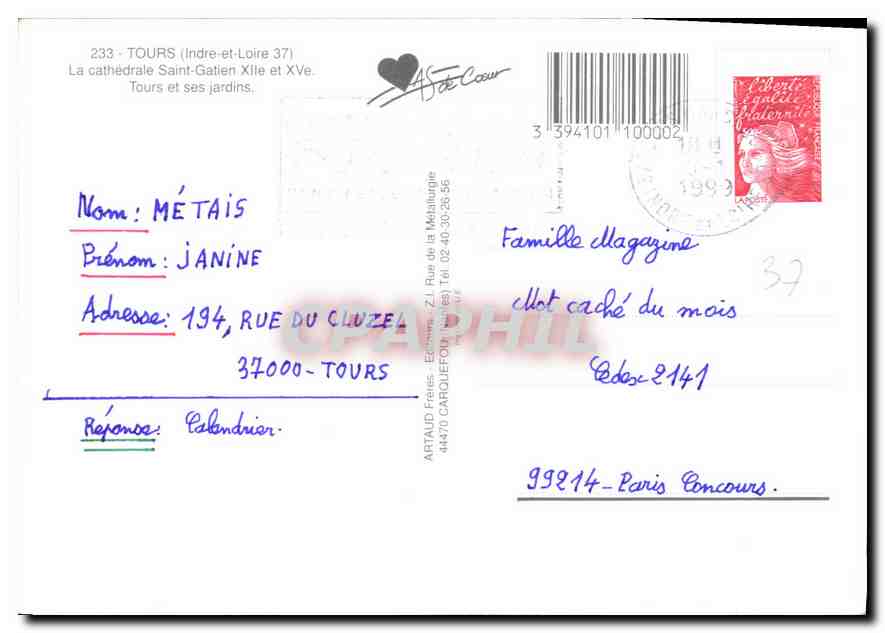 233 - TOURS (Indre-et-Loire 37)
La cathédrale Saint-Gatien XIIe et XVe.
Tours et ses jardins.
AS de Cœur
3 394101 100002
liberté
égalité
fraternité
RÉPUBLIQUE FRANÇAISE
LA POSTE
18 H
1999
INDRE-ET-LOIRE
Nom: MÉTAIS
Prénom: JANINE
Adresse: 194, RUE DU CLUZEL
37000 - TOURS
Réponse: Calendrier.
ARTAUD Frères - Editeurs - Z.I. Rue de la Métallurgie
44470 CARQUEFOU (Nantes) Tél. 02-40-30-26-56
Famille Magazine
Mot caché du mois
Cedex 2141
99214 - Paris Concours.
37
CPAPHIL